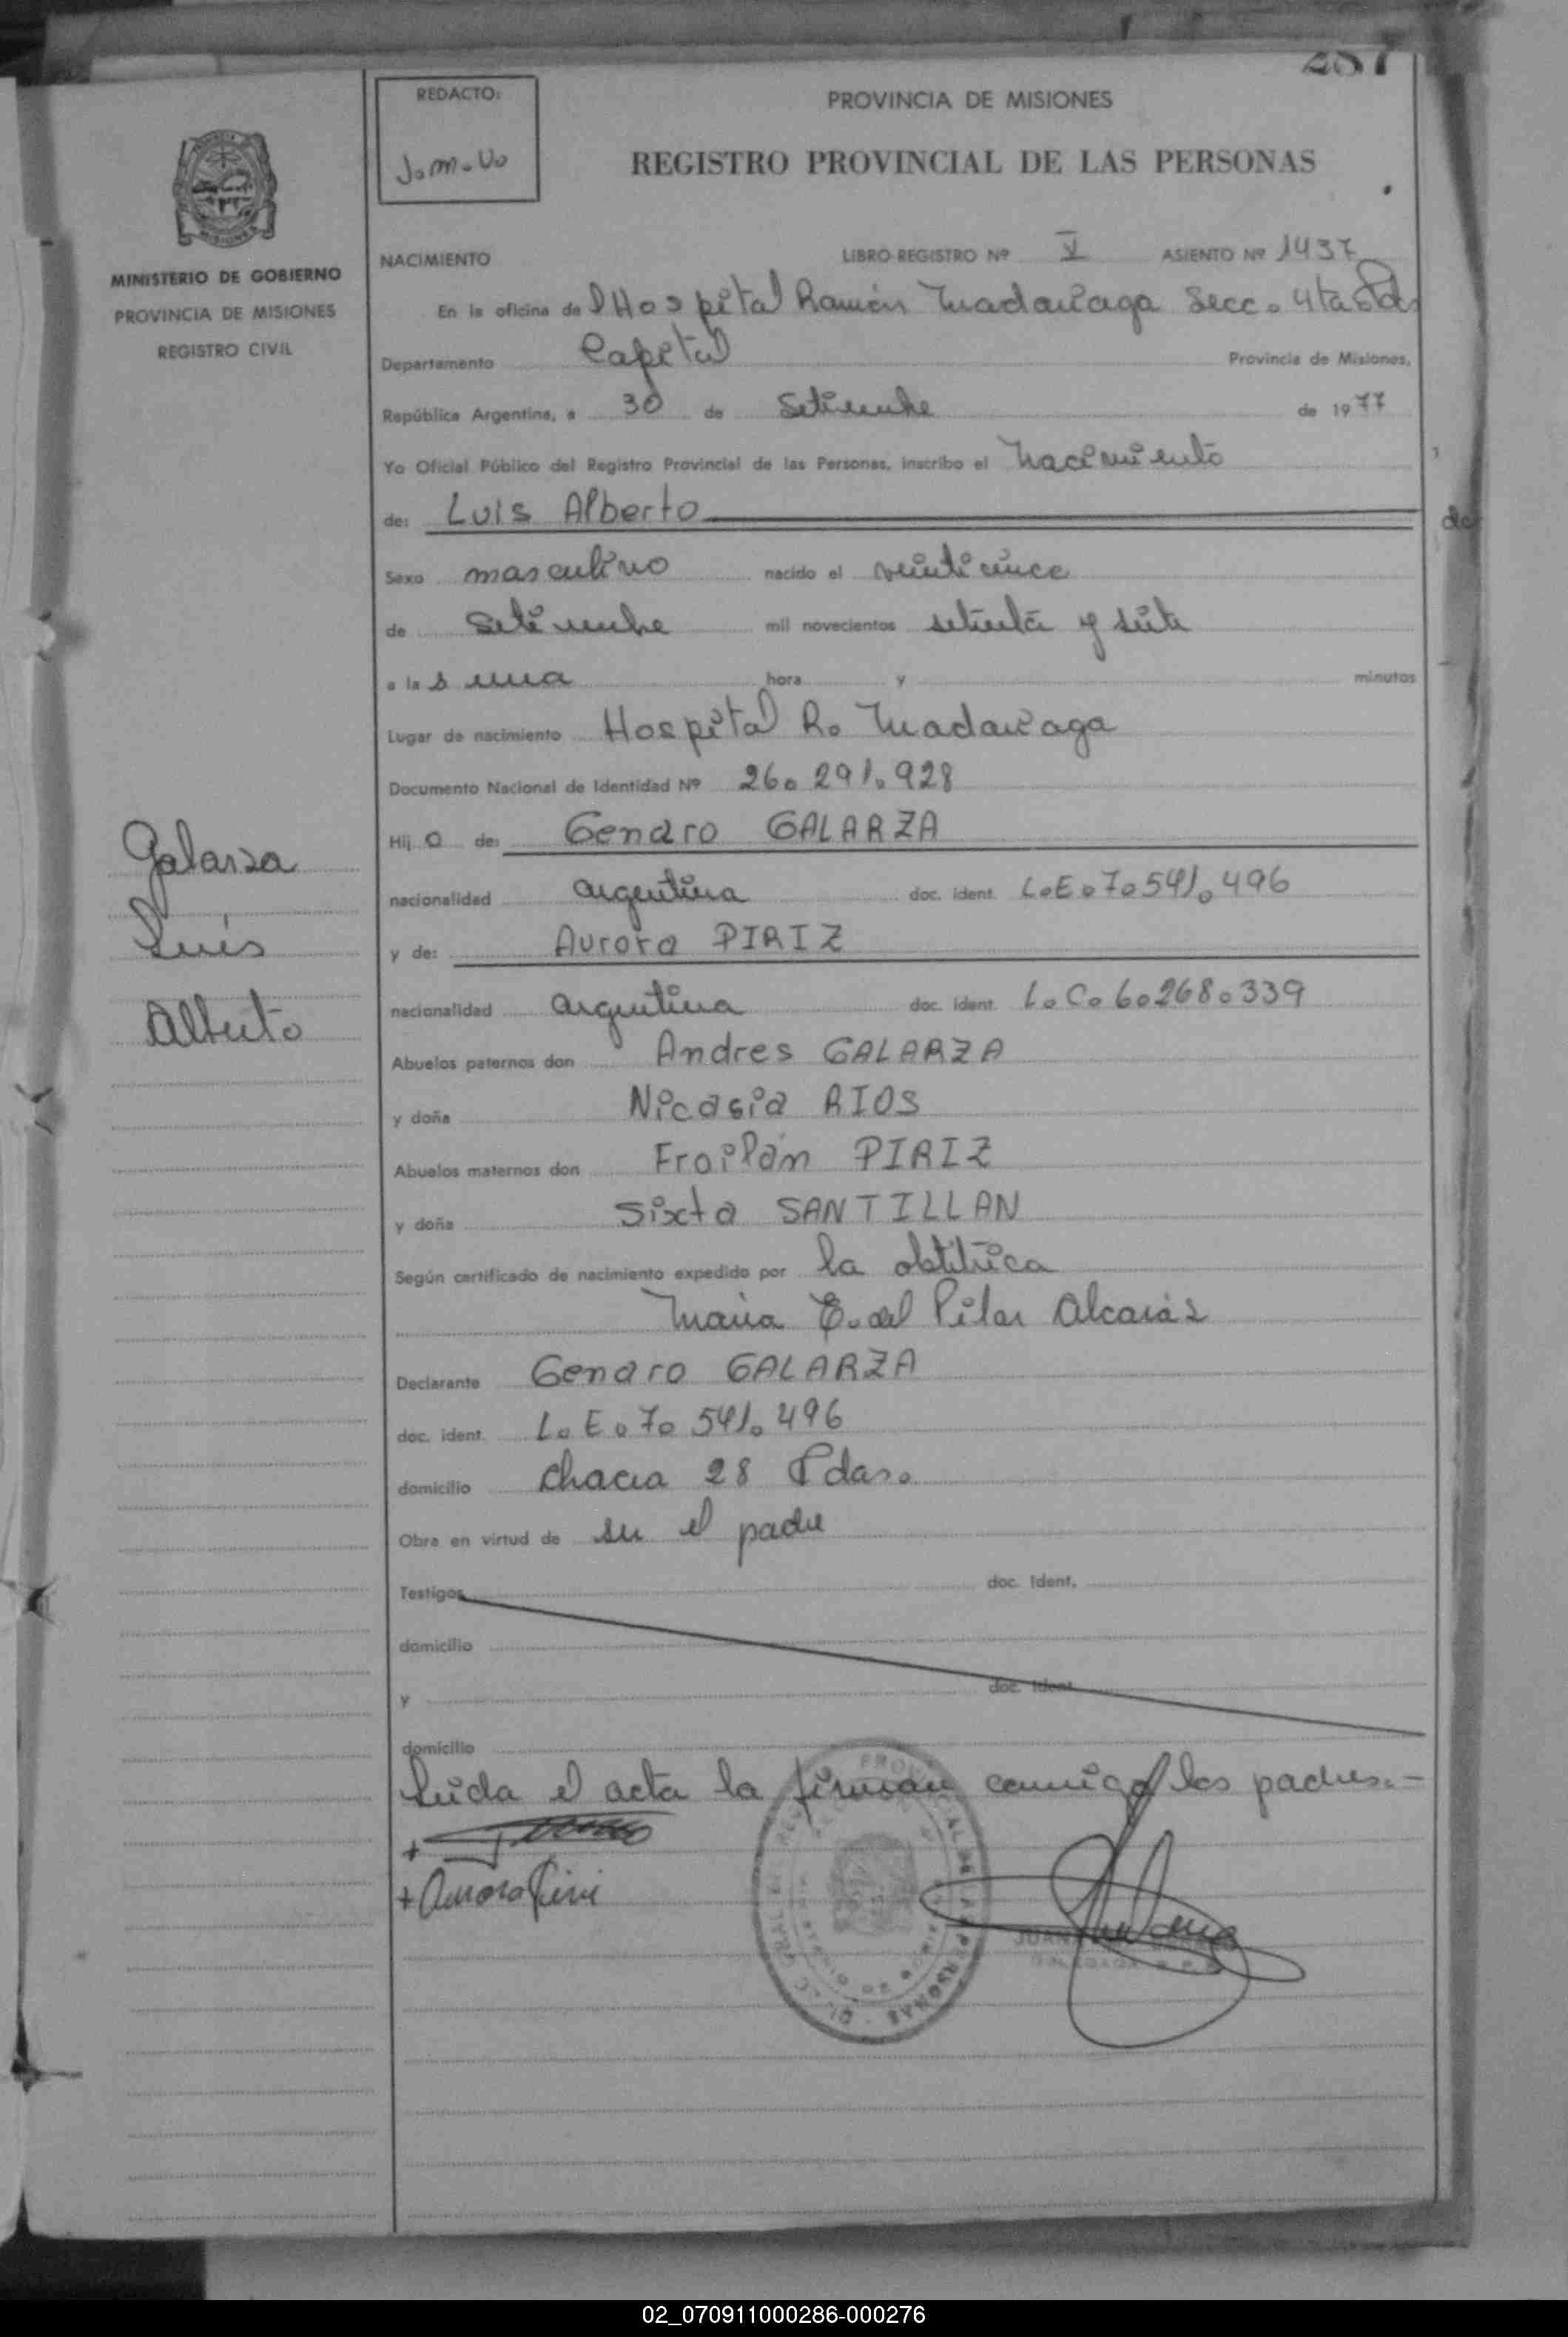 287
REDACTO:
J.M.V.
PROVINCIA DE MISIONES
REGISTRO PROVINCIAL DE LAS PERSONAS
MINISTERIO DE GOBIERNO
PROVINCIA DE MISIONES
REGISTRO CIVIL
NACIMIENTO LIBRO-REGISTRO Nº V ASIENTO Nº 1437
En la oficina de l Hospital Ramón Madariaga Secc. 4ta Pdas
Departamento Capital Provincia de Misiones,
República Argentina, a 30 de Setiembre de 1977
Yo Oficial Público del Registro Provincial de las Personas, inscribo el nacimiento
de: Luis Alberto
Sexo masculino nacido el veinticinco
de Setiembre mil novecientos setenta y siete
a la s una hora y minutos
Lugar de nacimiento Hospital R. Madariaga
Documento Nacional de Identidad Nº 26.291.928
Hij o de: Genaro GALARZA
nacionalidad argentina doc. ident. L.E.7.541.496
y de: Aurora PIRIZ
nacionalidad argentina doc. ident. L.C.6.268.339
Abuelos paternos don Andres GALARZA
y doña Nicasia RIOS
Abuelos maternos don Froilán PIRIZ
y doña Sixta SANTILLAN
Según certificado de nacimiento expedido por la obstétrica
María E. del Pilar Alcaráz
Declarante Genaro GALARZA
doc. ident. L.E.7.541.496
domicilio Chacra 28 Pdas.
Obra en virtud de ser el padre
Testigos doc. Ident.
domicilio
y doc. Ident.
domicilio
Leida el acta la firman conmigo los padres.-
+
+ Aurora Piriz
JUAN
Galarza
Luis
Alberto
02_070911000286-000276